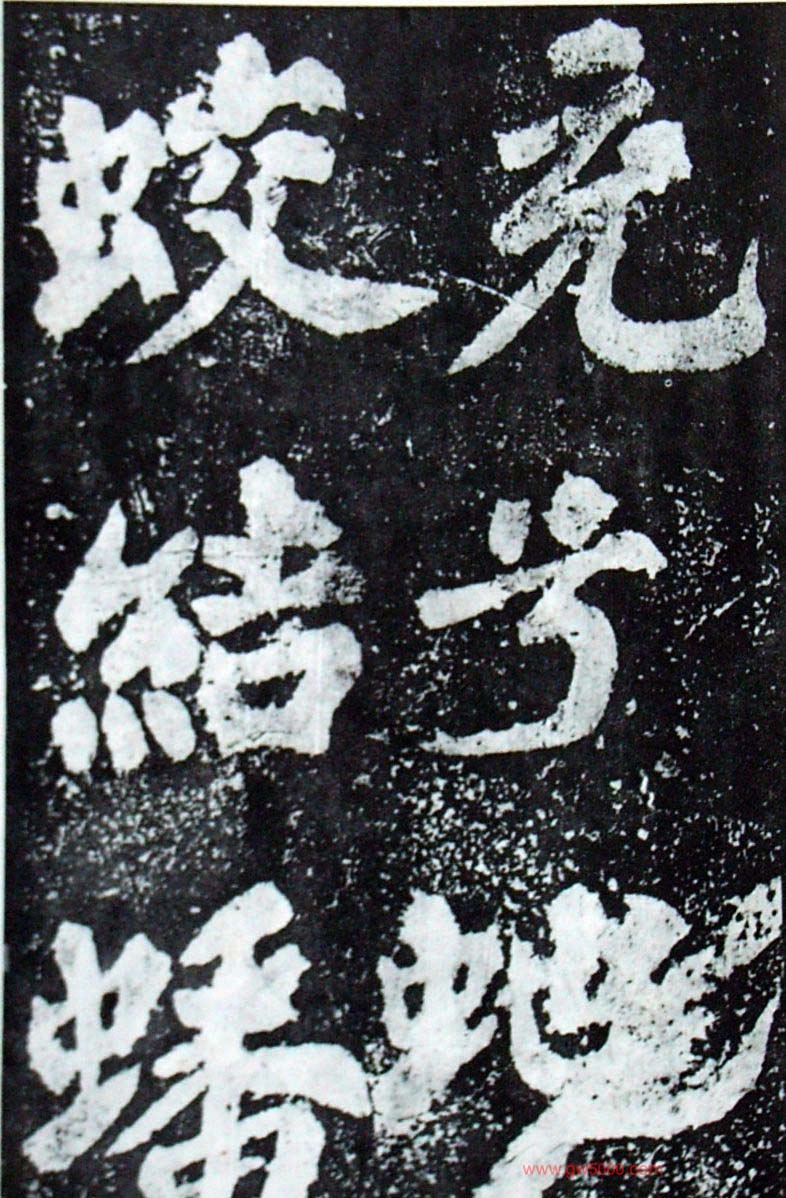 充兮虵
蛟結蟠
www.gwj5000.com